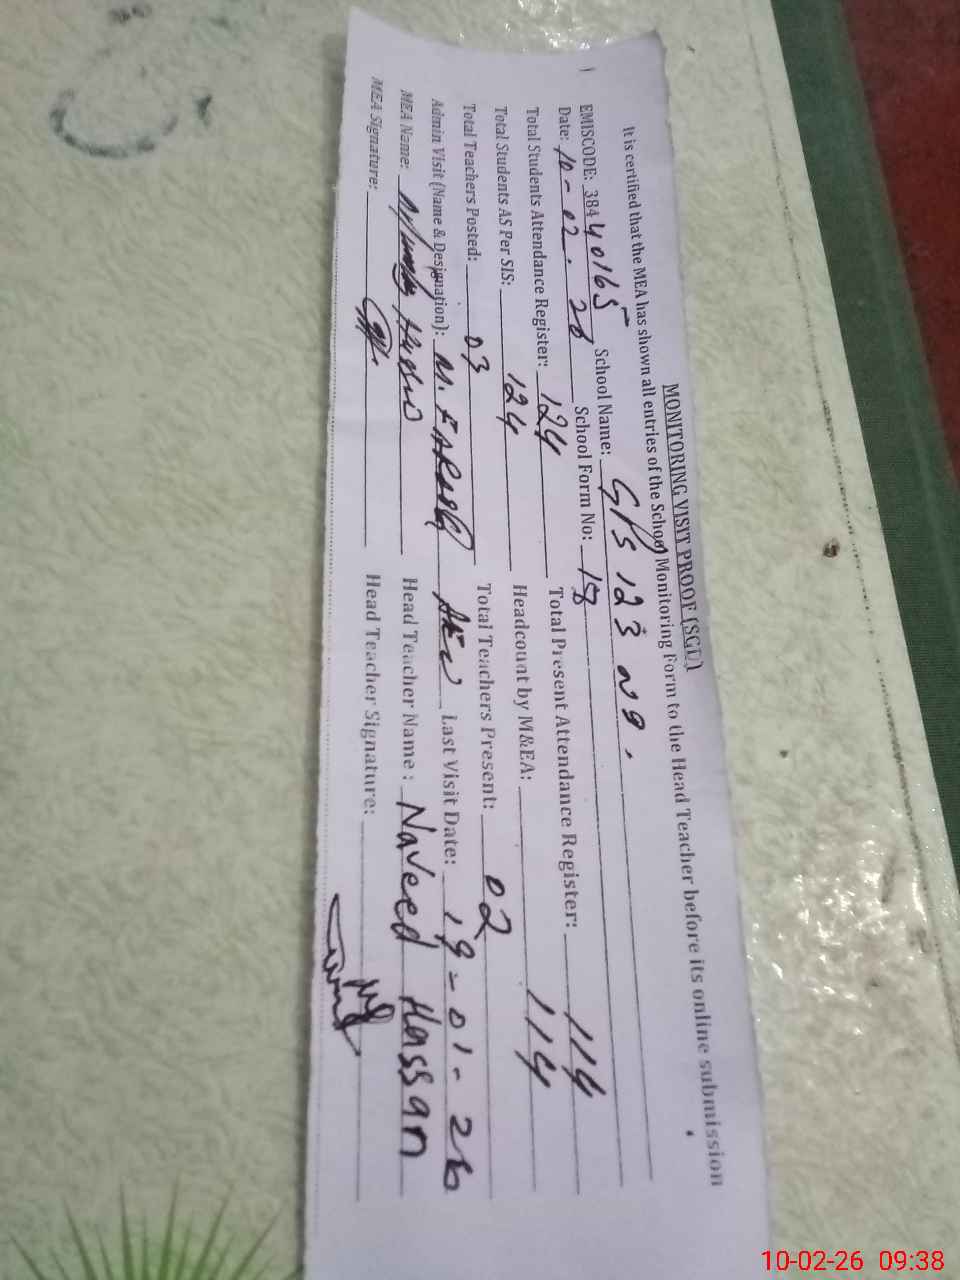 MONITORING VISIT PROOF (SGD)
It is certified that the MEA has shown all entries of the School Monitoring Form to the Head Teacher before its online submission
EMISCODE: 38440165 School Name: GPS 123 NB.
Date: 10-02-26 School Form No: 18
Total Students Attendance Register: 124 Total Present Attendance Register: 114
Total Students AS Per SIS: 124 Headcount by M&EA: 114
Total Teachers Posted: 03 Total Teachers Present: 02
Admin Visit (Name & Designation): M. FAROOQ AEO Last Visit Date: 19-01-26
MEA Name: Head Teacher Name: Naveed Hassan
MEA Signature: Head Teacher Signature:
10-02-26 09:38